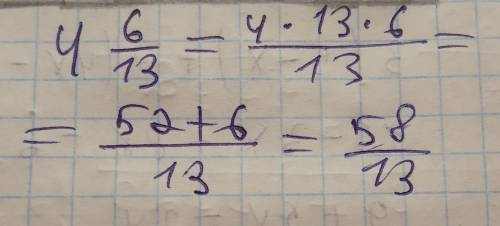 4 6/13 = 4 · 13 · 6 / 13 =
= 52 + 6 / 13 = 58 / 13